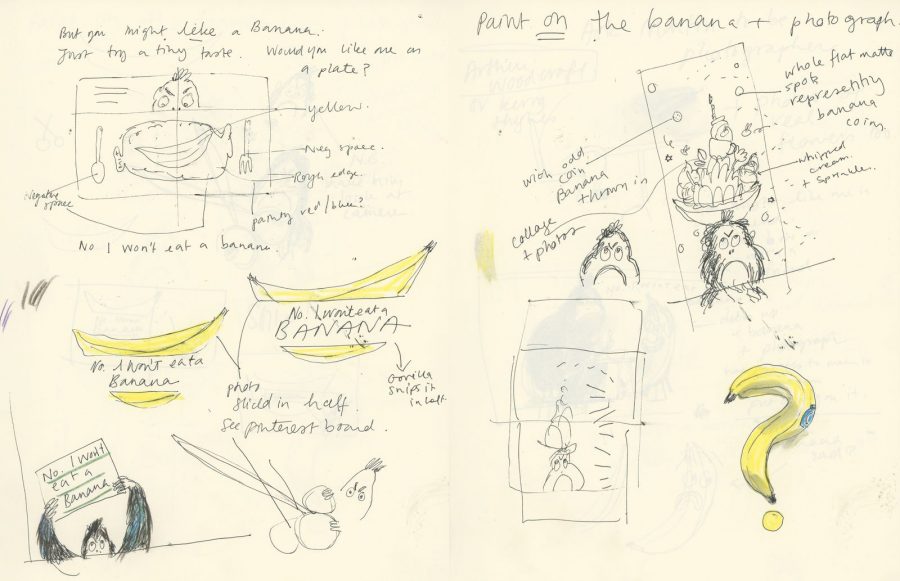 But you might like a Banana.
Just try a tiny taste. Would you like me on
a plate?
yellow.
Neg space.
Rough edge.
Negative
space
painty red/blue?
No I won't eat a banana.
No. I won't eat a
BANANA
No. I won't eat a
Banana
photo
Slicld in half.
See pinterest board.
Gorilla
snips it
in half.
No. I won't
eat a
Banana
Paint on the banana + photograph.
whole flat matte
spots
representing
banana
coins
with odd
coin
Banana
thrown in
whipped
cream.
+ sprinkles.
collage
+ photos